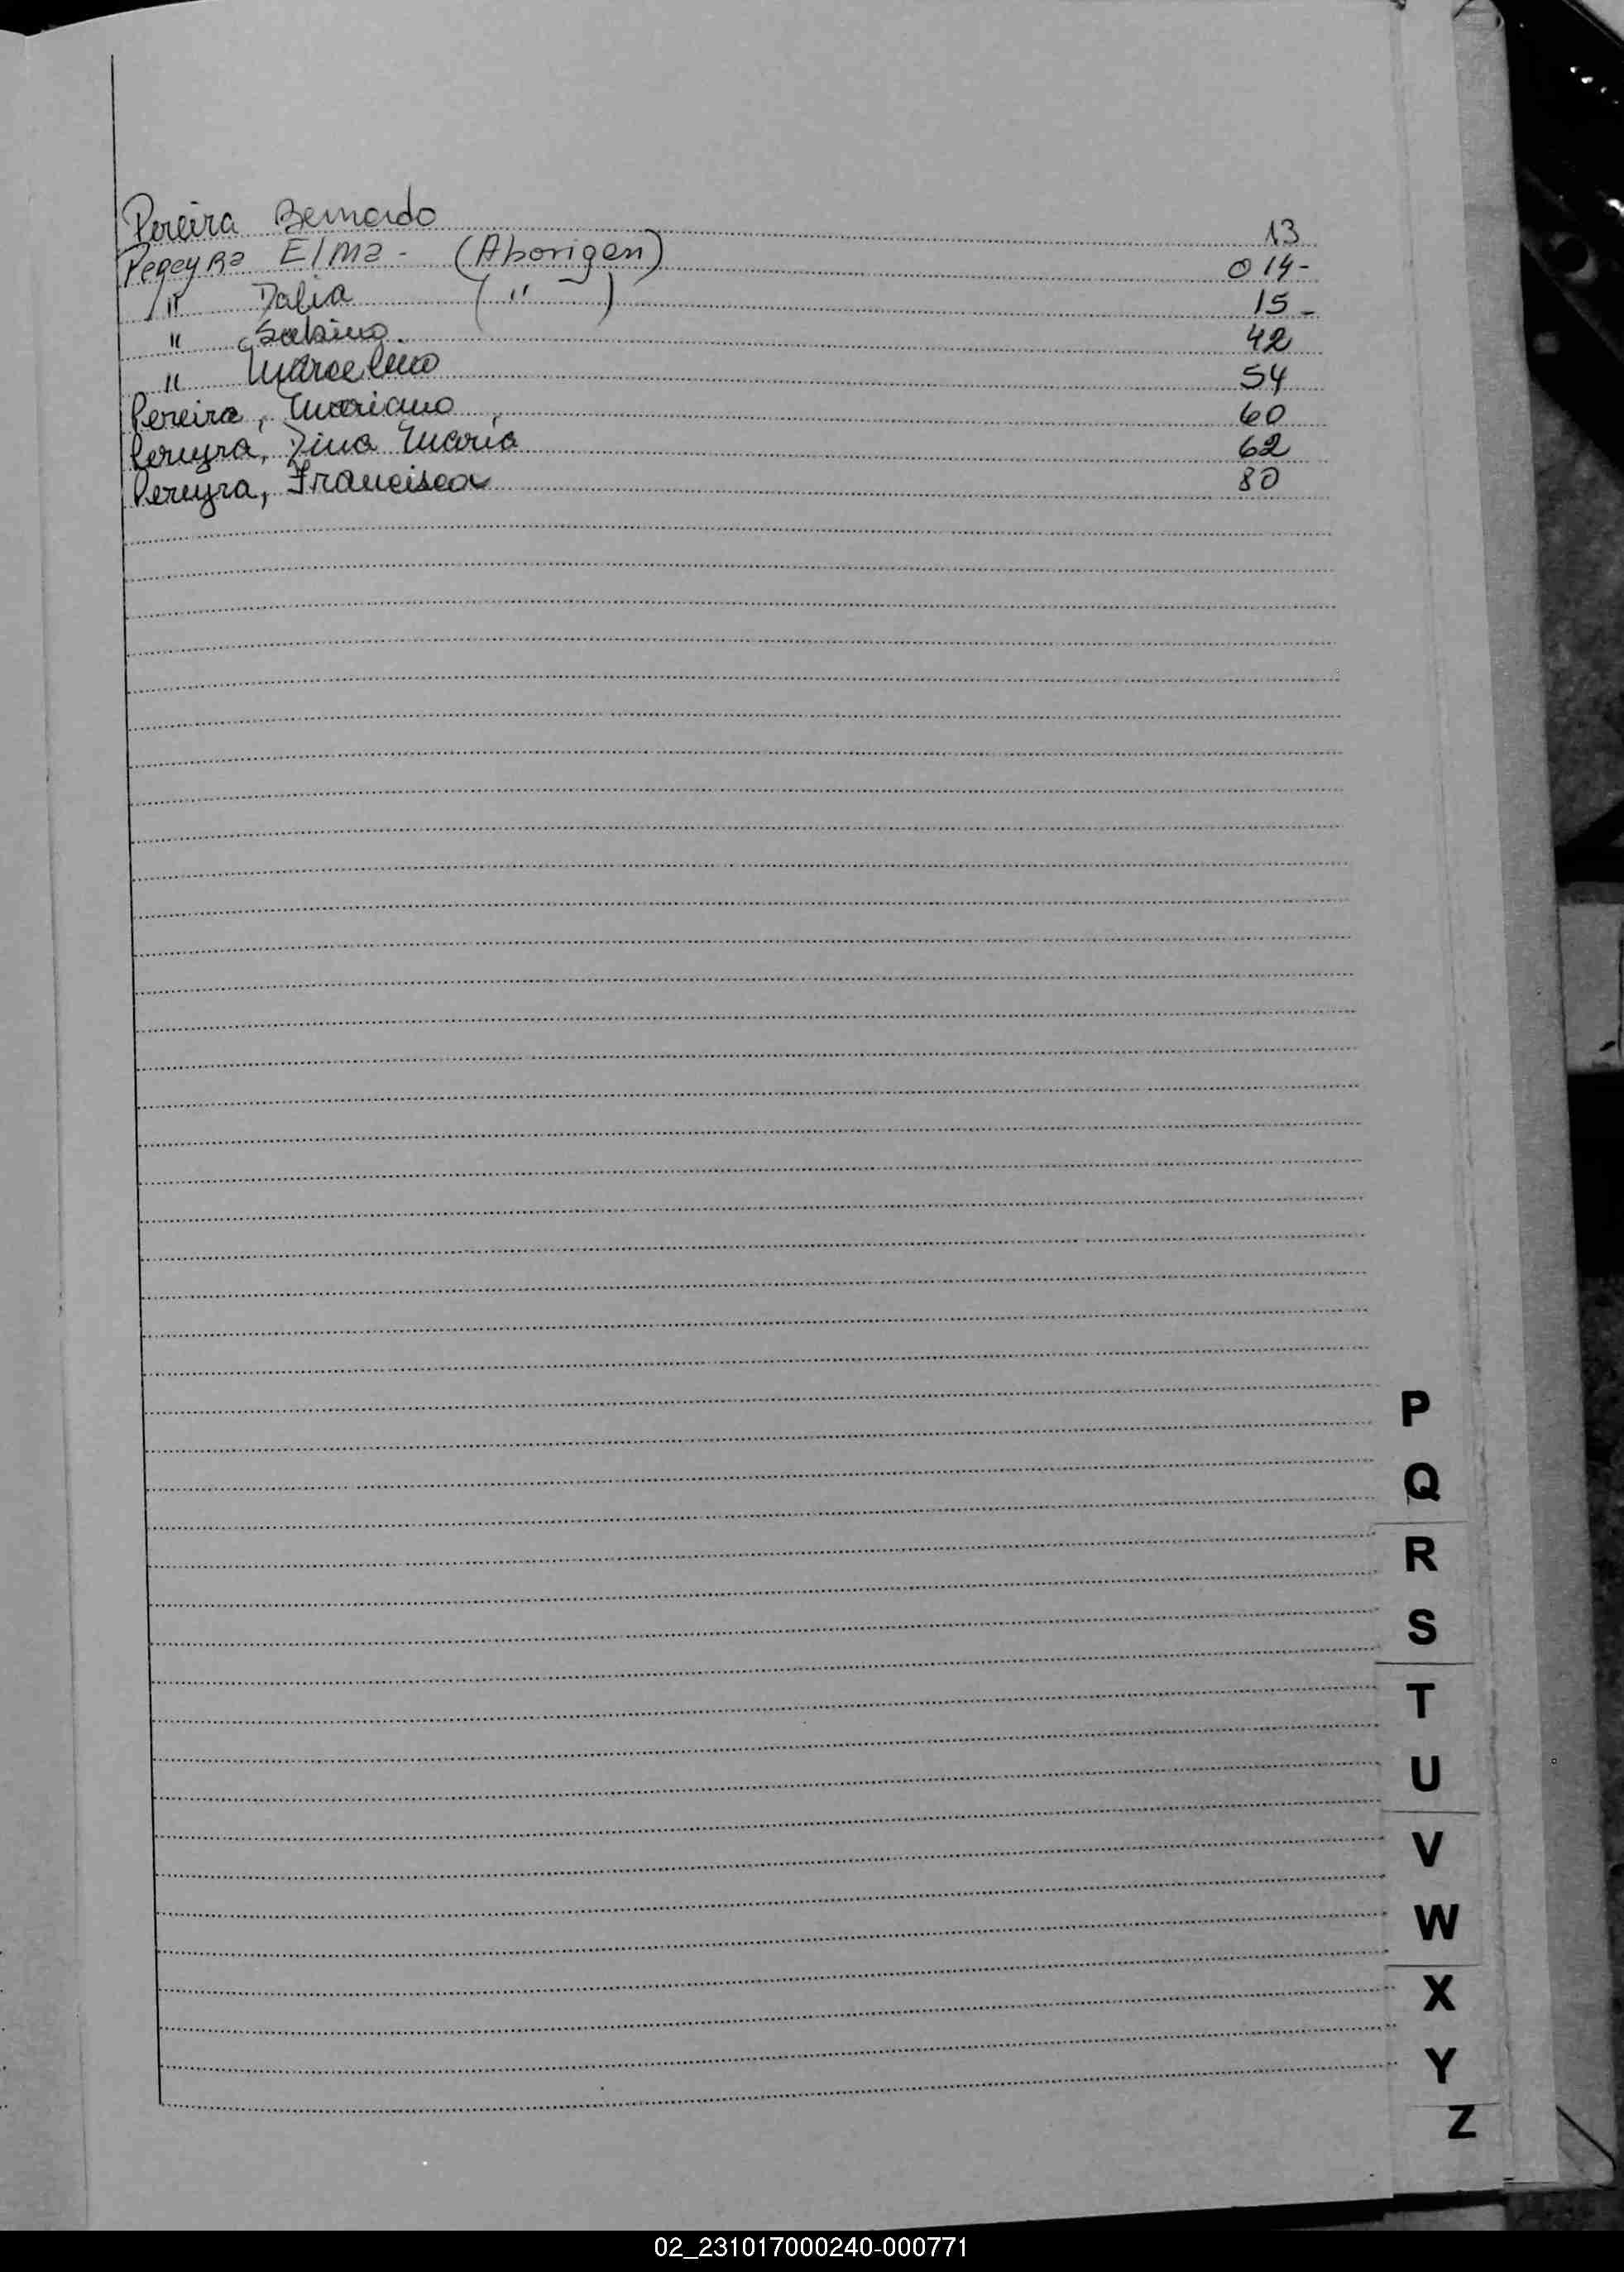 Pereira Bernardo 13
Pereyra Elma - (Aborigen) 014-
" Dalia ( " ) 15-
" Sabino. 42
" Marcelino 54
Pereira, Mariano 60
Pereyra, Dina Maria 62
Pereyra, Francisca 80
P
Q
R
S
T
U
V
W
X
Y
Z
02_231017000240-000771